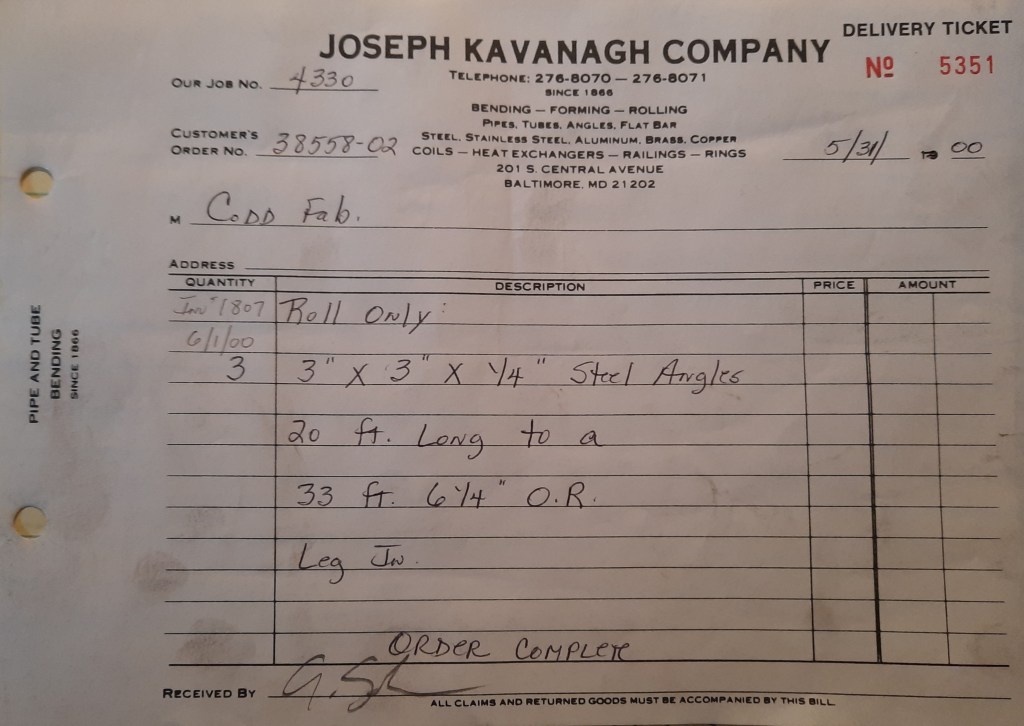 DELIVERY TICKET
JOSEPH KAVANAGH COMPANY
Nº 5351
OUR JOB NO. 4330
TELEPHONE: 276-8070 — 276-8071
SINCE 1866
BENDING — FORMING — ROLLING
PIPES, TUBES, ANGLES, FLAT BAR
CUSTOMER'S
ORDER NO. 38558-02
STEEL, STAINLESS STEEL, ALUMINUM, BRASS, COPPER
COILS — HEAT EXCHANGERS — RAILINGS — RINGS
5/31/ 00
201 S. CENTRAL AVENUE
BALTIMORE, MD 21202
M Codd Fab.
ADDRESS
QUANTITY DESCRIPTION PRICE AMOUNT
Inv # 1807 Roll Only:
6/1/00
3 3" X 3" X 1/4" Steel Angles
20 ft. Long to a
33 ft. 6 1/4" O.R.
Leg In.
ORDER COMPLETE
RECEIVED BY
ALL CLAIMS AND RETURNED GOODS MUST BE ACCOMPANIED BY THIS BILL
PIPE AND TUBE
BENDING
SINCE 1866